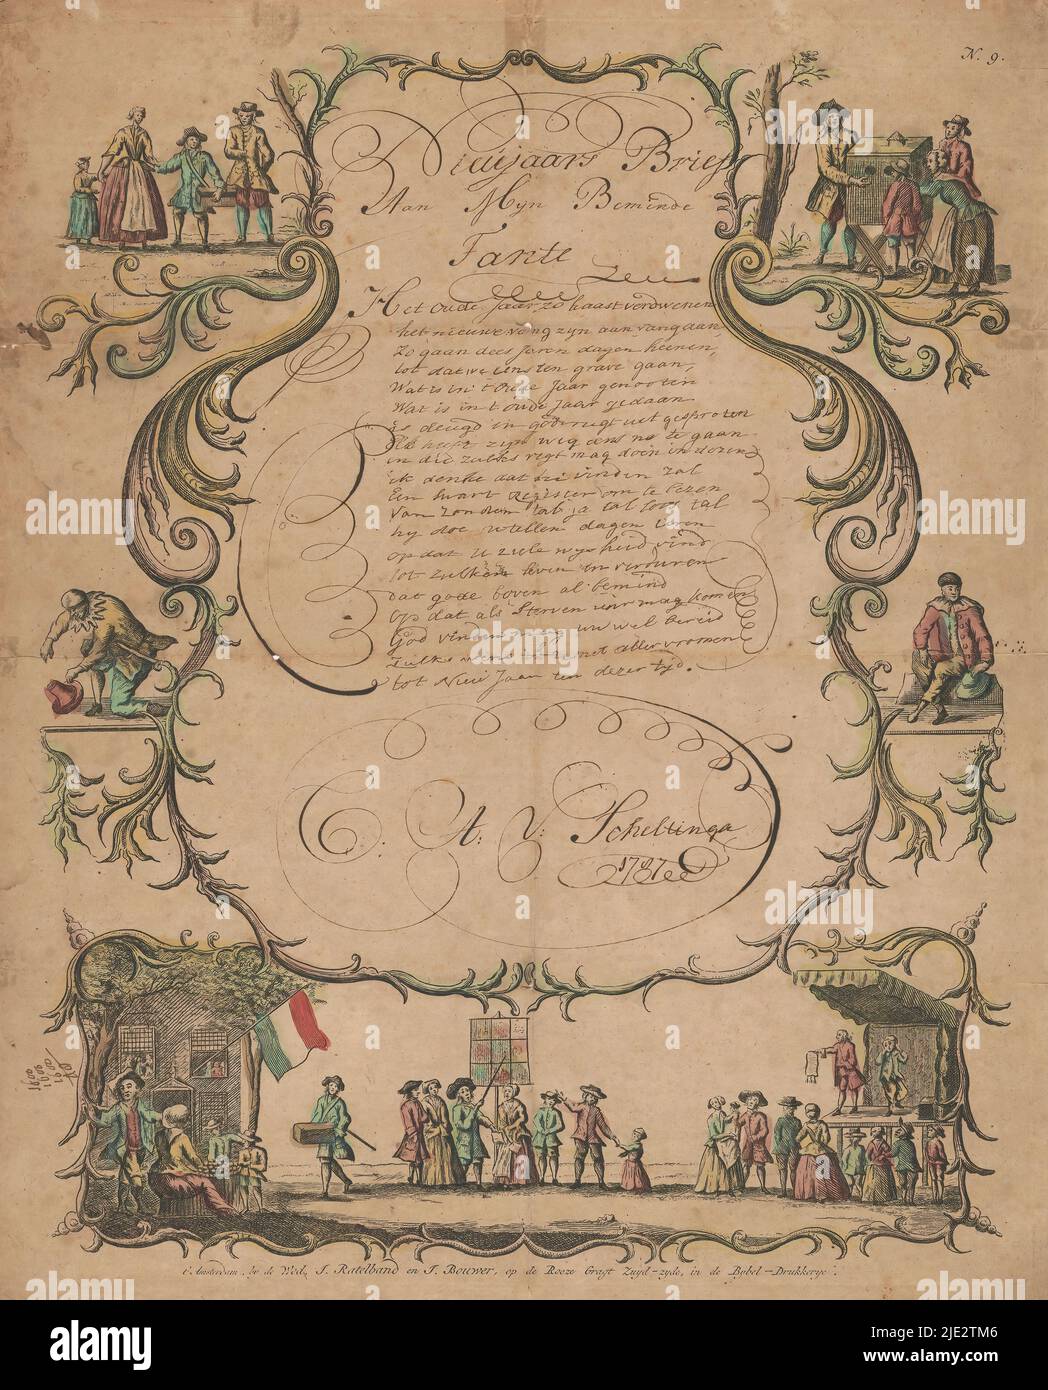 N. 9.
Nieuwjaars Brief
Aan Mijn Beminde
Tante
Het oude Jaar zo haast verdwenen
het nieuwe vong zijn aanvang aan,
Zo gaan dees Jaren dagen heenen,
tot dat we eens ten grave gaan,
Wat is in 't oude Jaar genooten
Wat is in t oude Jaar gedaan
is deugd en godvrugt uit gesproten
heeft zijn weg eens na te gaan
in die zulks regt mag doen in dezen
ik denke dat hij vinden zal
Een swart Register om te lezen
Van zonden tal
hy doe wellen dagen leren
op dat u ziele wysheid vind
tot zulken leven en
dat gode boven al bemind
Op dat als Sterven uur mag komen
God vinden mag uw wel bereid
Zulks wens met alle vroomen
tot Nieu Jaar in dezer tyd.
C. A. V: Scheltinga
1787
t'Amsterdam, by de Wed. J. Ratelband en J. Bouwer, op de Rooze Gragt Zuyd-zyde, in de Bybel-Drukkerye.
alamy
Image ID: 2JE2TM6
www.alamy.com